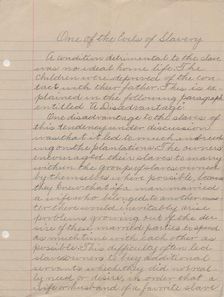 One of the Evils of Slavery
A condition detrimental to the slave
was no ideal home life. The
children were deprived of the con-
tact with their father. This is ex-
plained in the following paragraph
entitled A Disadvantage:
One disadvantage to the slaves of
this tendency under discussion
was that it led to much inbreed-
ing on the plantations. The owners
encouraged their slaves to marry
within the group of slaves owned
by themselves where possible, because
they knew that if a man married
a wife who belonged to another mas-
ter there would inevitably arise
problems growing out of the de-
sire of these married parties to spend
as much time with each other as
possible. This difficulty often led
slaveowners to buy additional
servants which they did not real-
ly need or desire, in order that a
wife or husband of a favorite slave